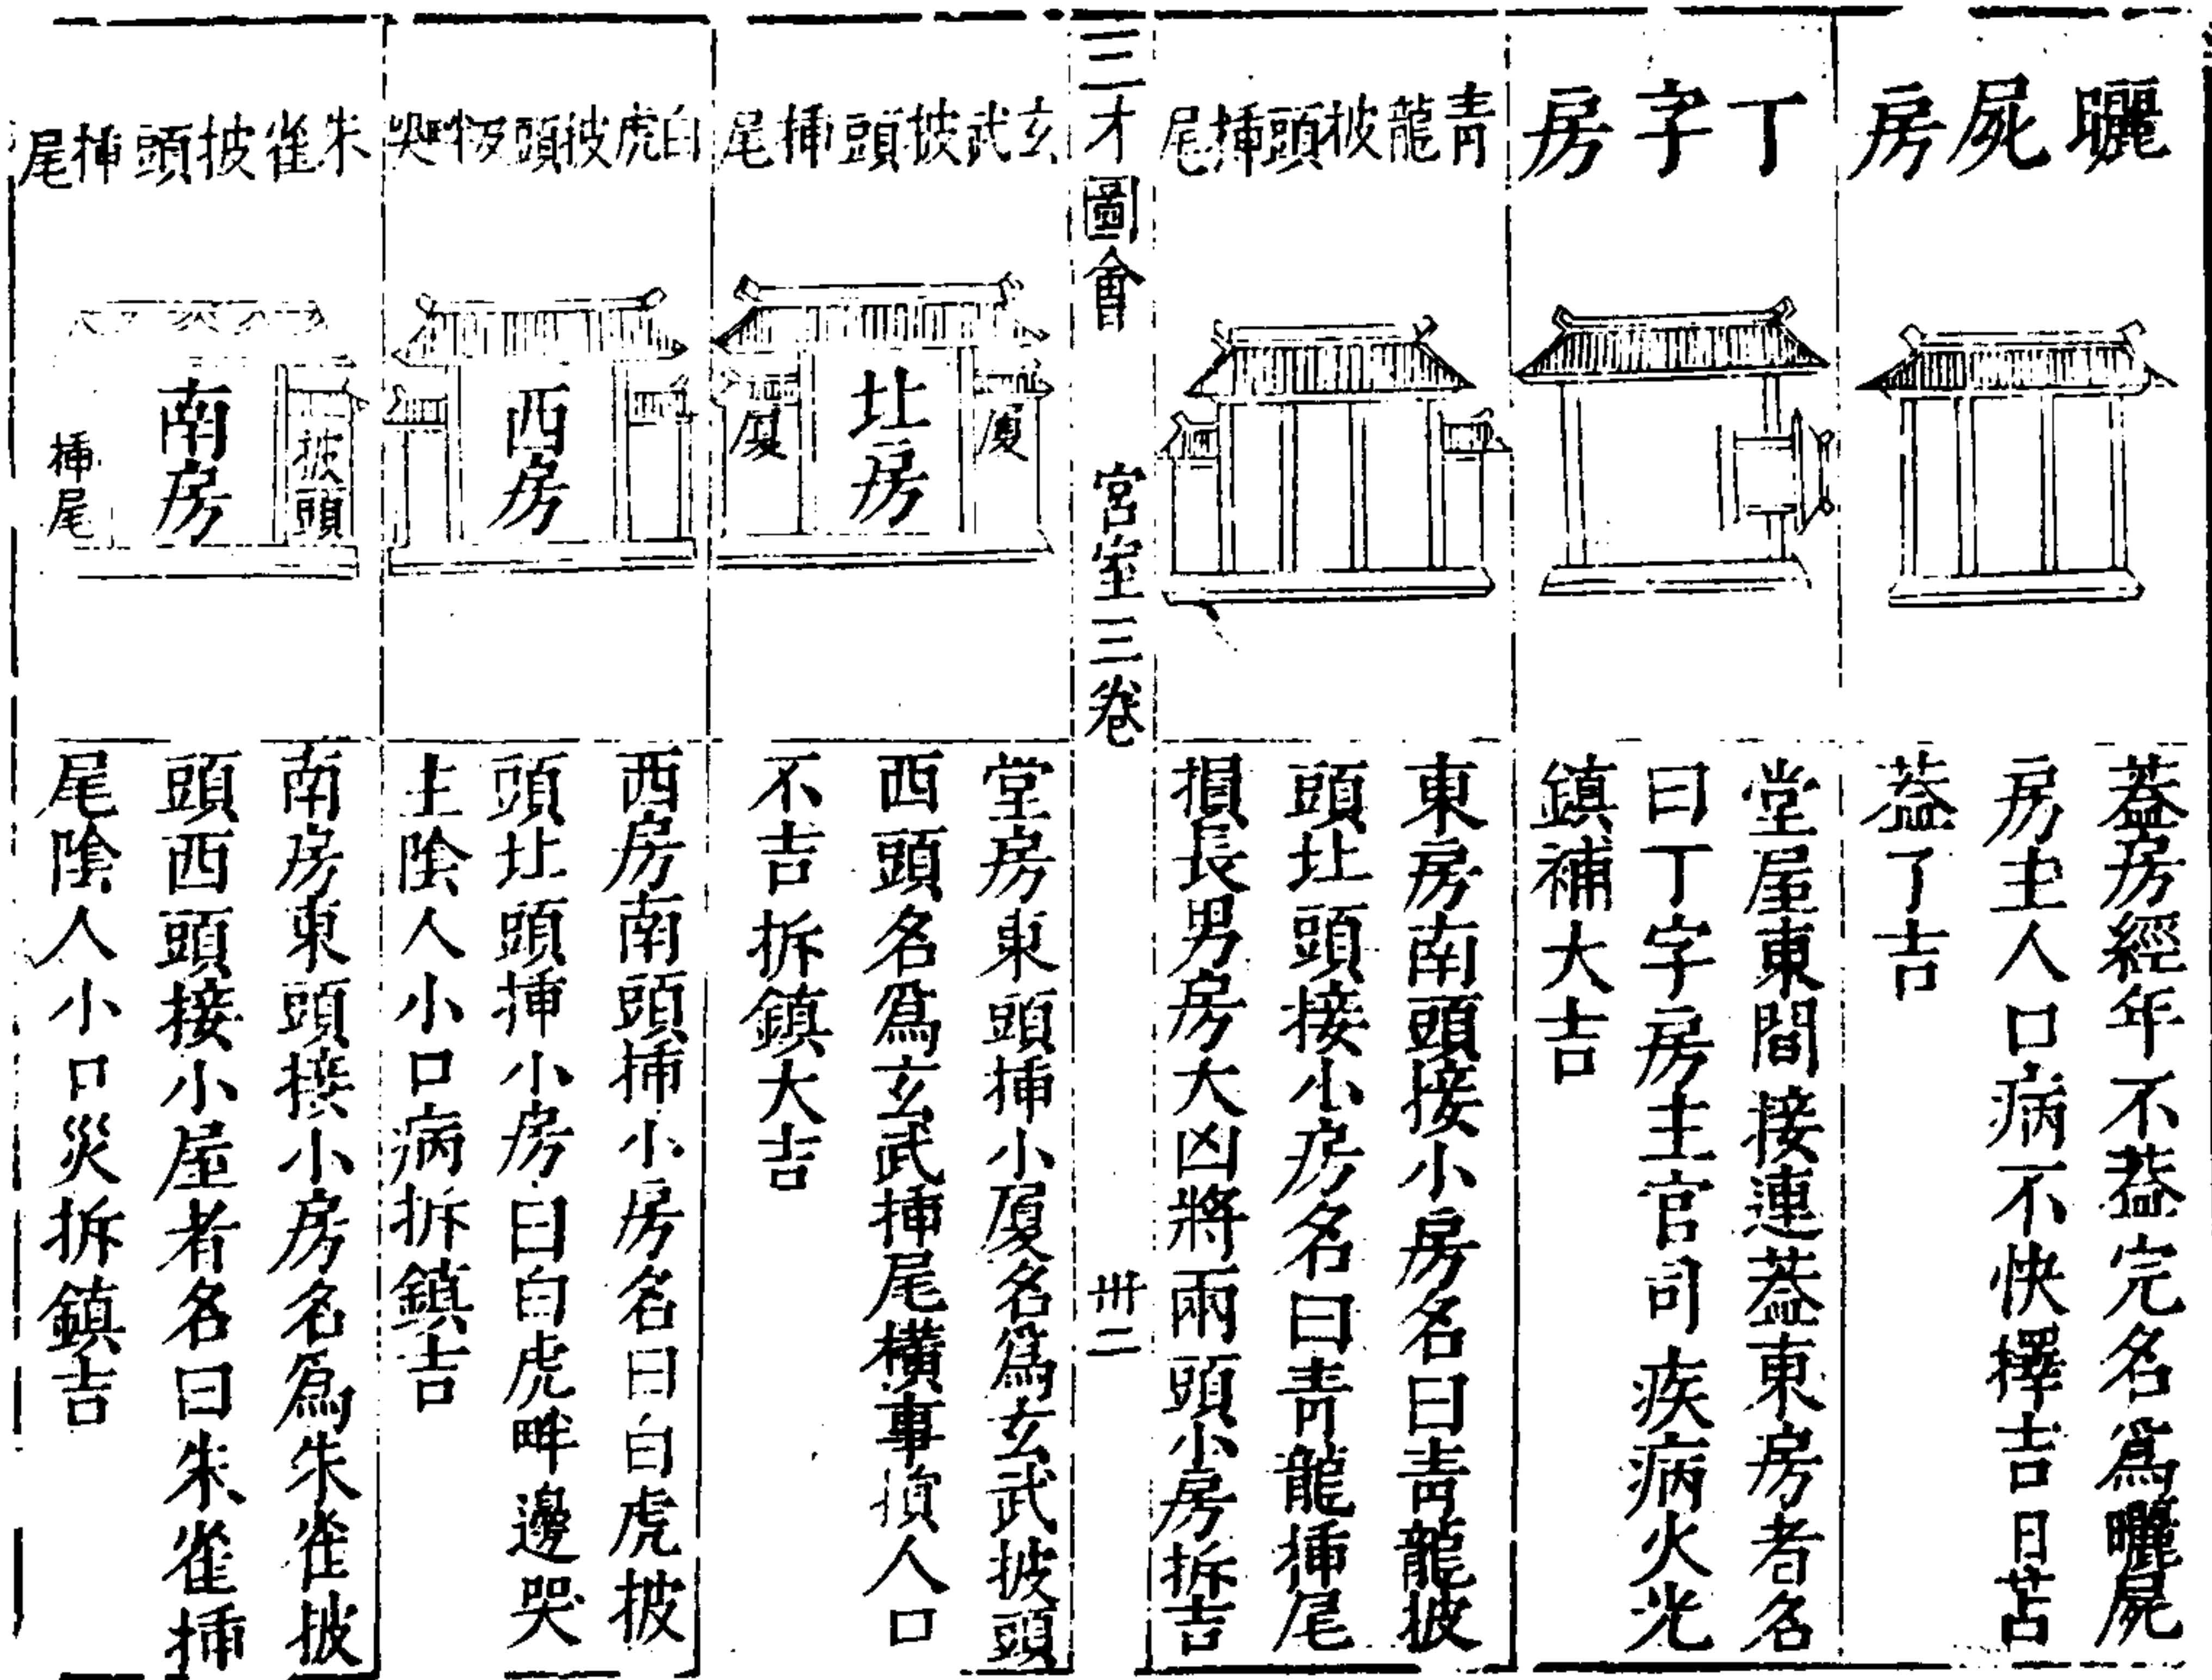 曬屍房
葢房經年不葢完名爲曬屍
房主人口病不快擇吉日苫
葢了吉
丁字房
堂屋東間接連葢東房者名
曰丁字房主官司疾病火光
鎮補大吉
青龍披頭揷尾
東房南頭接小房名曰青龍披
頭北頭接小房名曰青龍揷尾
損長男房大凶將兩頭小房拆吉
三才圖會
宮室三卷
卅二
玄武披頭揷尾
厦
北房
厦
堂房東頭揷小厦名爲玄武披頭
西頭名爲玄武揷尾橫事損人口
不吉拆鎮大吉
白虎披頭畔哭
西房
西房南頭揷小房名曰白虎披
頭北頭揷小房曰白虎畔邊哭
主陰人小口病拆鎮吉
朱雀披頭揷尾
披頭
南房
揷尾
南房東頭接小房名爲朱雀披
頭西頭接小屋者名曰朱雀揷
尾陰人小口災拆鎮吉